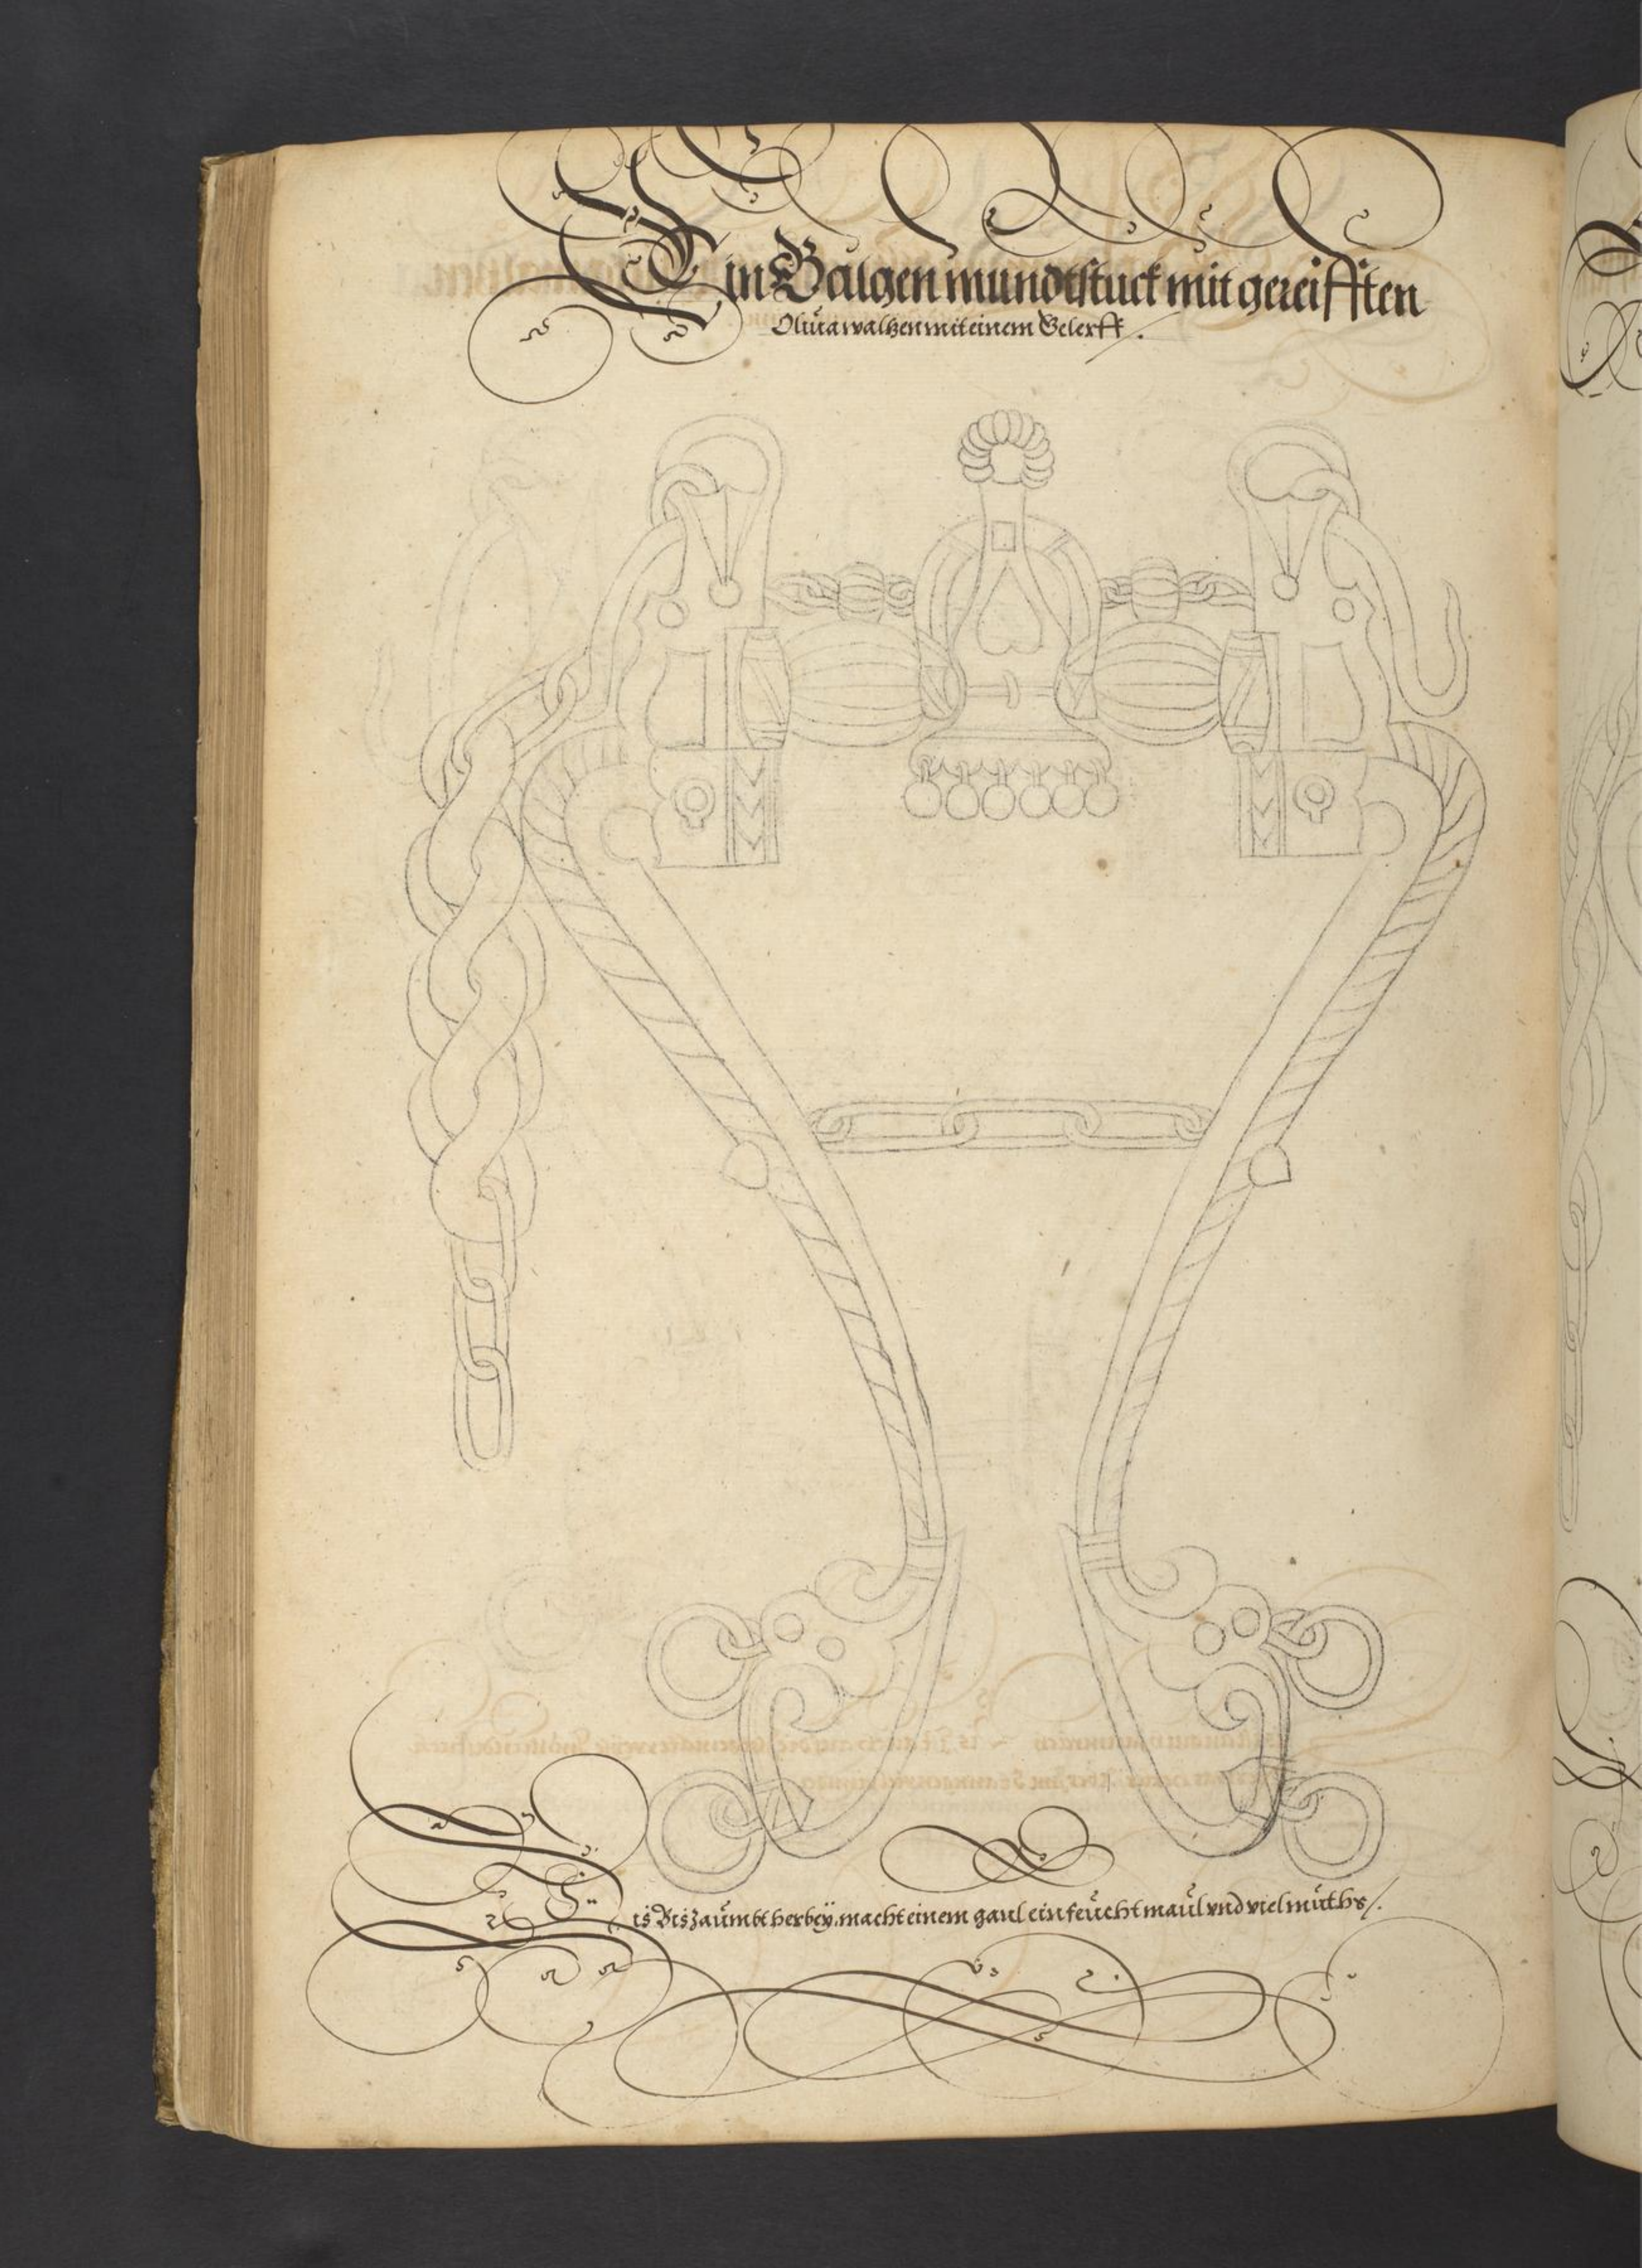 Ein Galgen mundtstuck mit gereifften
Oliua waltzen mit einem Gelerff /.
Dis Bis zaümbt herbeÿ. macht einem gaul ein feücht maül vnd viel müths /.